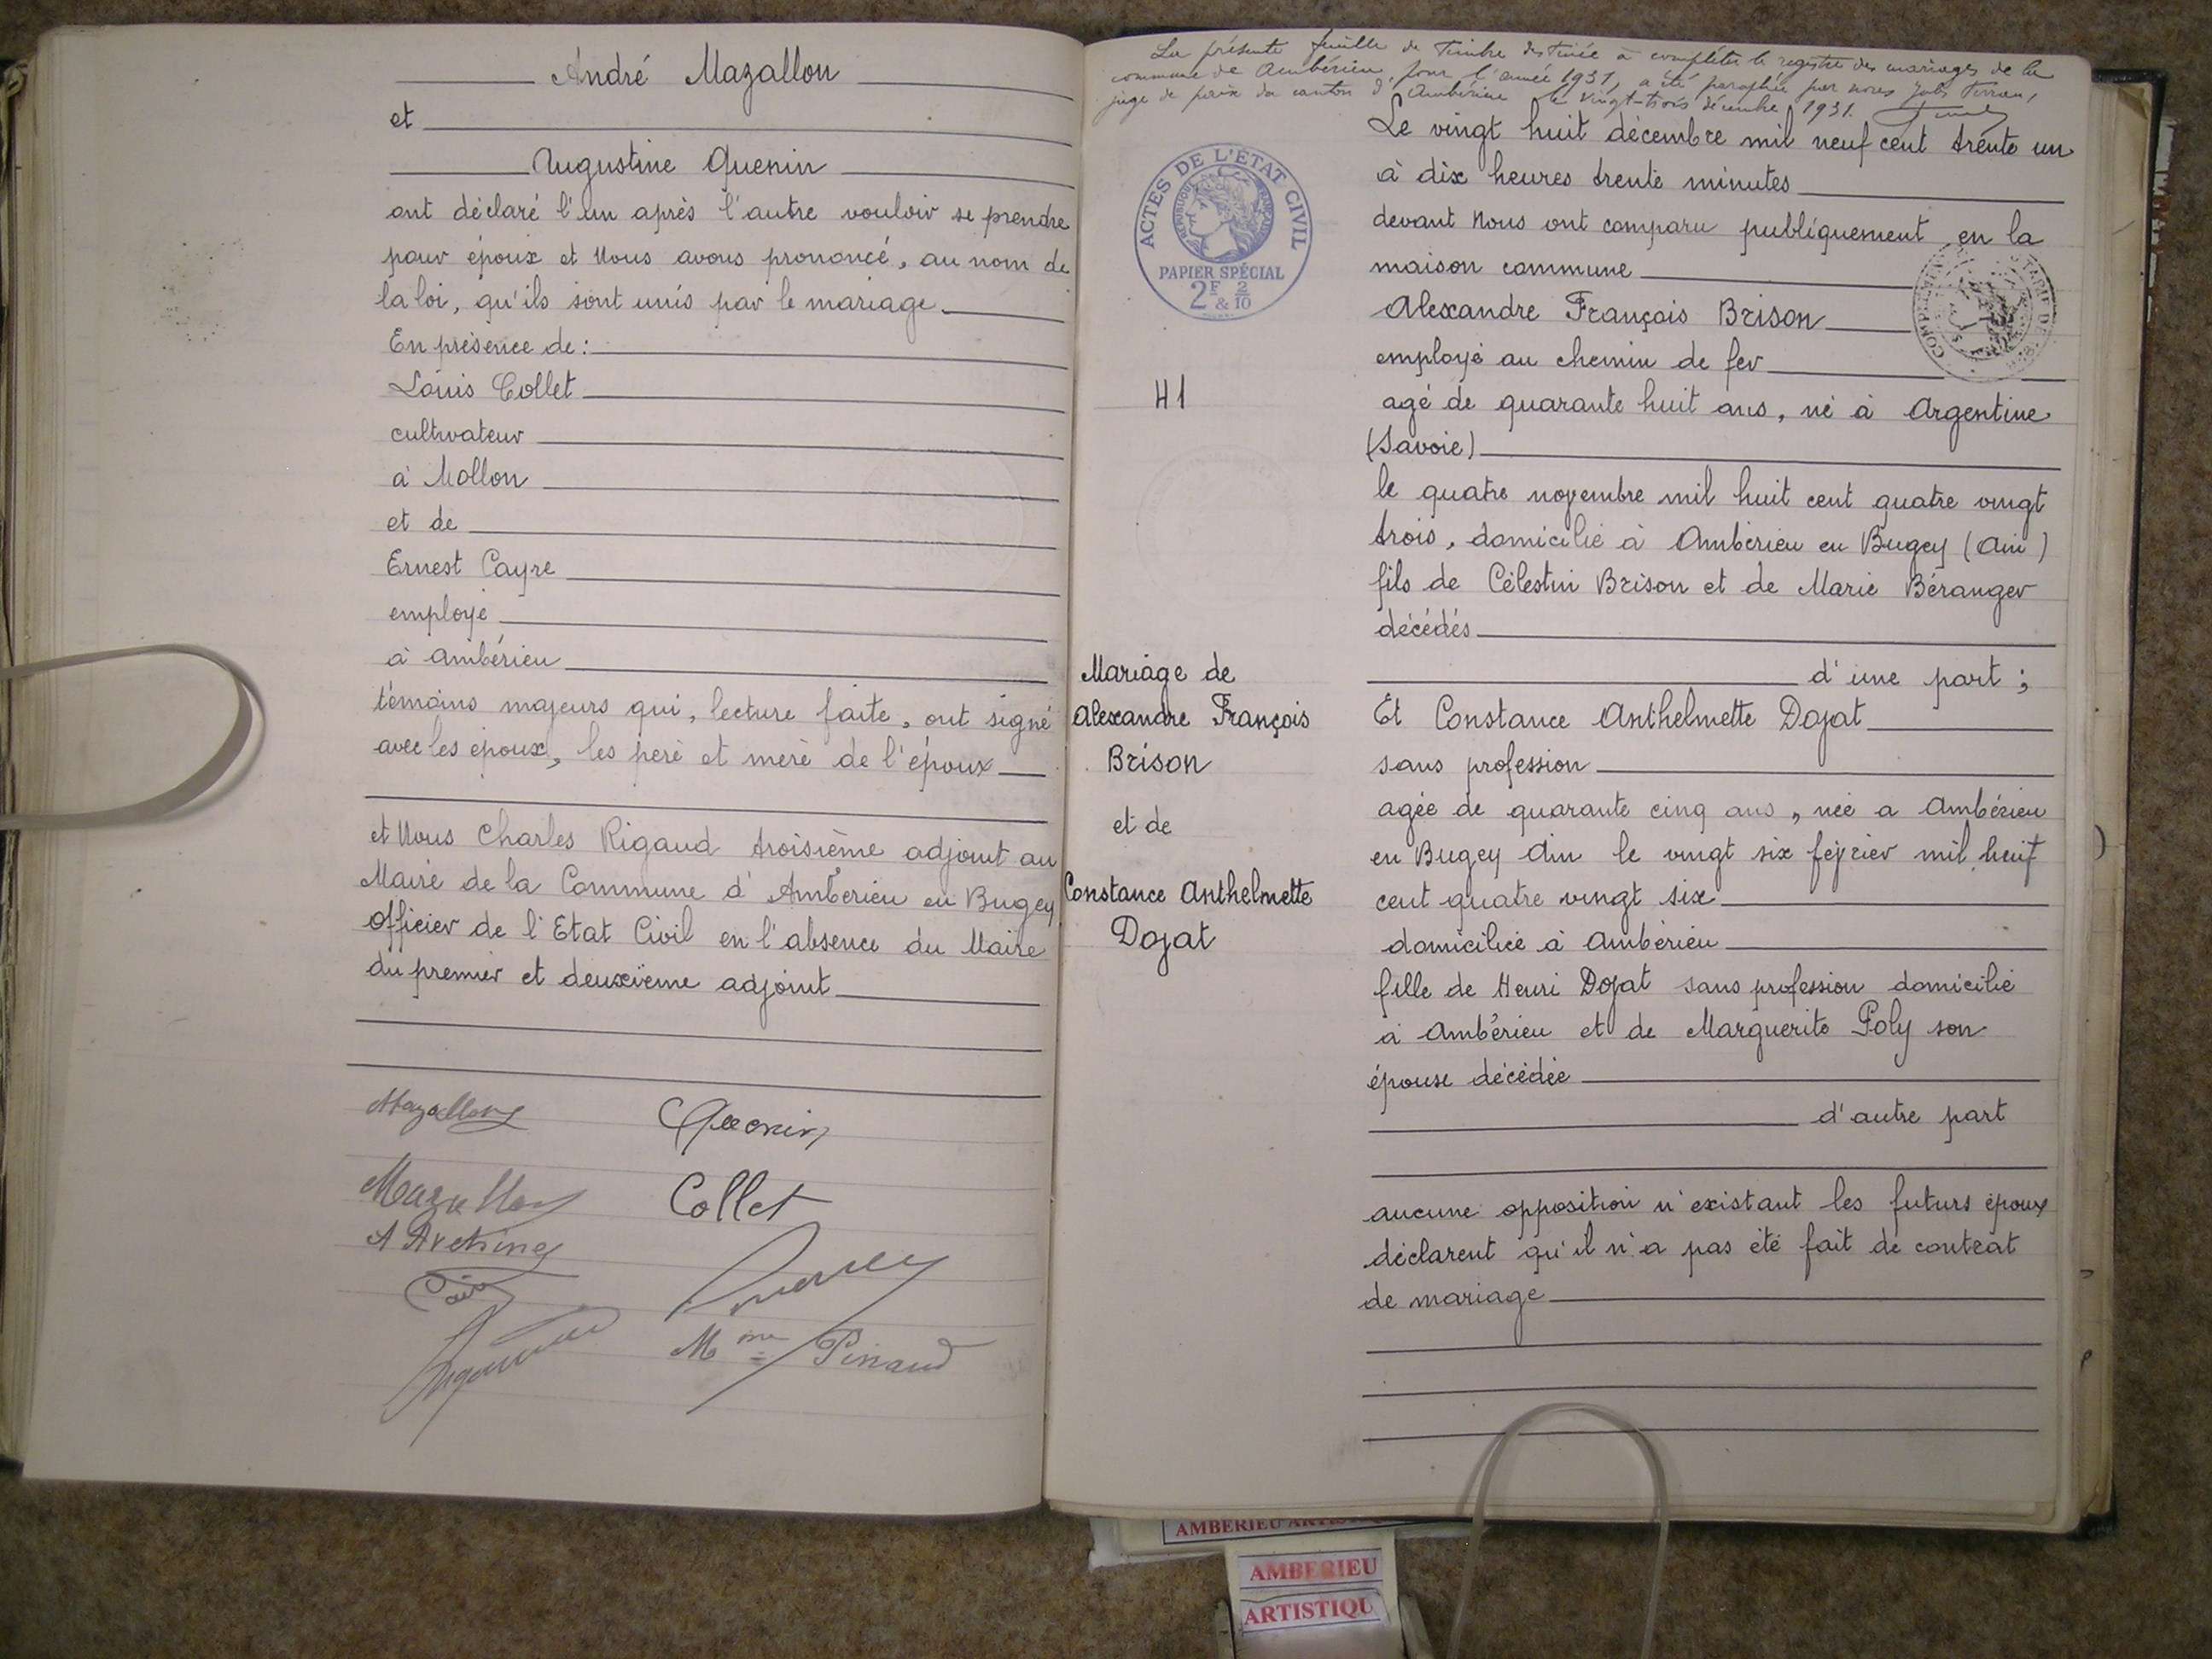 André Mazallon
et
Augustine Quenin
ont déclaré l'un après l'autre vouloir se prendre
pour époux et Nous avons prononcé, au nom de
la loi, qu'ils sont unis par le mariage.
En présence de :
Louis Collet
cultivateur
à Mollon
et de
Ernest Cayre
employé
à Ambérieu
témoins majeurs qui, lecture faite, ont signé
avec les époux, les père et mère de l'époux
et Nous Charles Rigaud troisième adjoint au
Maire de la Commune d'Ambérieu en Bugey
Officier de l'Etat Civil en l'absence du Maire
du premier et deuxième adjoint
Mazallon
Quenin
Mazallon
Collet
Mme Pinaud
La présente feuille de Timbre destinée à compléter le registre des mariages de la
commune de Ambérieu, pour l'année 1931, a été paraphée par nous
juge de paix du canton d'Ambérieu le vingt-trois décembre 1931.
ACTES DE L'ÉTAT CIVIL
RÉPUBLIQUE FRANÇAISE
PAPIER SPÉCIAL
2F & 2/10
41
Mariage de
Alexandre François
Brison
et de
Constance Anthelmette
Dojat
Le vingt huit décembre mil neuf cent trente un
à dix heures trente minutes
devant Nous ont comparu publiquement en la
maison commune
Alexandre François Brison
employé au chemin de fer
agé de quarante huit ans, né à Argentine
(Savoie)
le quatre novembre mil huit cent quatre vingt
trois, domicilié à Ambérieu en Bugey (Ain)
fils de Célestin Brison et de Marie Béranger
décédés
d'une part ;
Et Constance Anthelmette Dojat
sans profession
agée de quarante cinq ans, née a Ambérieu
en Bugey Ain le vingt six février mil huit
cent quatre vingt six
domiciliée à Ambérieu
fille de Henri Dojat sans profession domicilié
à Ambérieu et de Marguerite Poly son
épouse décédée
d'autre part
aucune opposition n'existant les futurs époux
déclarent qu'il n'a pas été fait de contrat
de mariage
AMBERIEU
AMBERIEU
ARTISTIQU